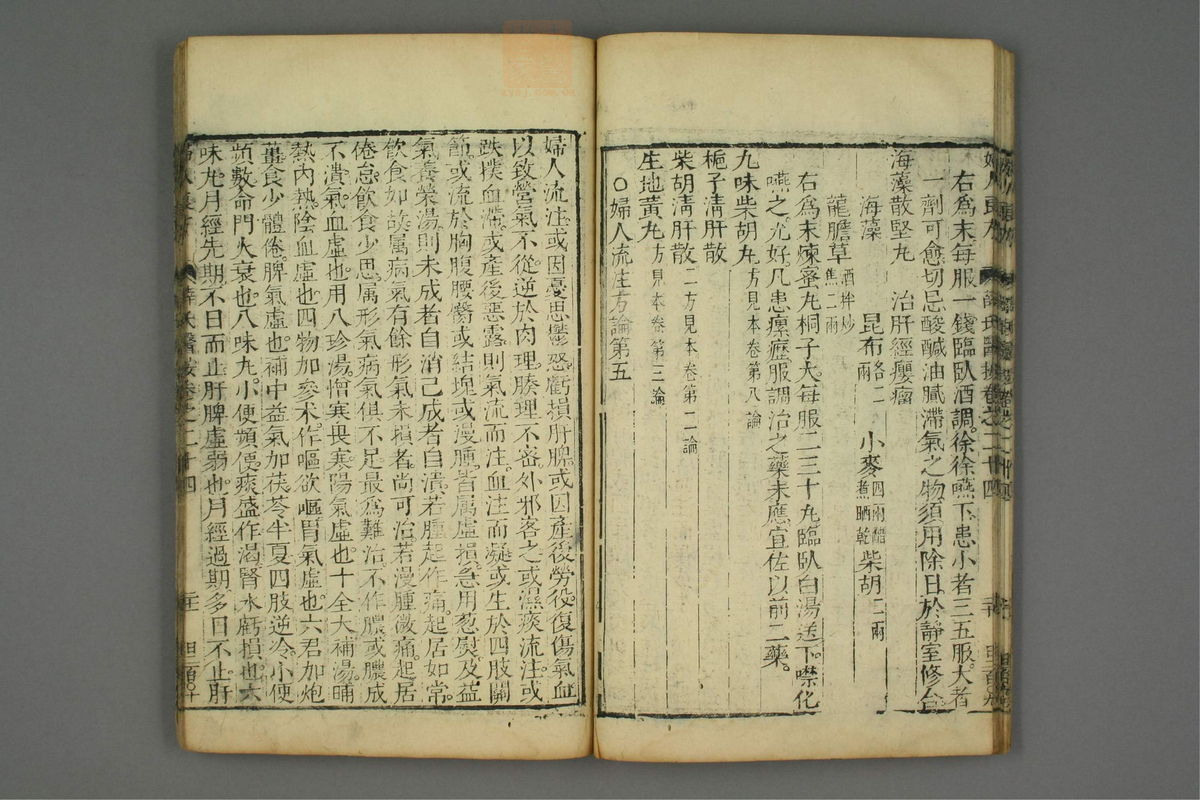 右爲末每服一錢臨臥酒調徐徐嚥下患小者三五服大者
一劑可愈切忌酸醎油膩滯氣之物須用除日於靜室修合
海藻散堅丸　治肝經癭瘤
海藻　昆布各二兩　小麥四兩醋煮晒乾　柴胡二兩
龍膽草酒拌炒焦二兩
右爲末煉蜜丸桐子大每服二三十丸臨臥白湯送下噙化
嚥之尤好凡患瘰癧服調治之藥未應宜佐以前二藥
九味柴胡丸方見本卷第八論
梔子淸肝散
柴胡淸肝散二方見本卷第二論
生地黃丸方見本卷第三論
○婦人流注方論第五
婦人流注或因憂思鬱恐虧損肝脾或因產後勞役復傷氣血
以致營氣不從逆於肉理腠理不密外邪客之或濕痰流注或
跌撲血滯或產後惡露則氣流而注血注而凝或生於四肢關
節或流於胸腹腰臀或結塊或漫腫皆属虛損急用葱熨及益
氣養榮湯則未成者自消已成者自潰若腫起作痛起居如常
飲食如故属病氣有餘形氣未損者尚可治若漫腫微痛起居
倦怠飲食少思属形氣病氣俱不足最爲難治不作膿或膿成
不潰氣血虛也用八珍湯憎寒畏寒陽氣虛也十全大補湯晡
熱內熱陰血虛也四物加參术作嘔欲嘔胃氣虛也六君加炮
薑食少體倦脾氣虛也補中益氣加茯苓半夏四肢逆冷小便
頻數命門火衰也八味丸小便頻便痰盛作渴腎水虧損也六
味丸月經先期不日而止肝脾虛弱也月經過期多日不止肝
薛氏醫按卷之二十四